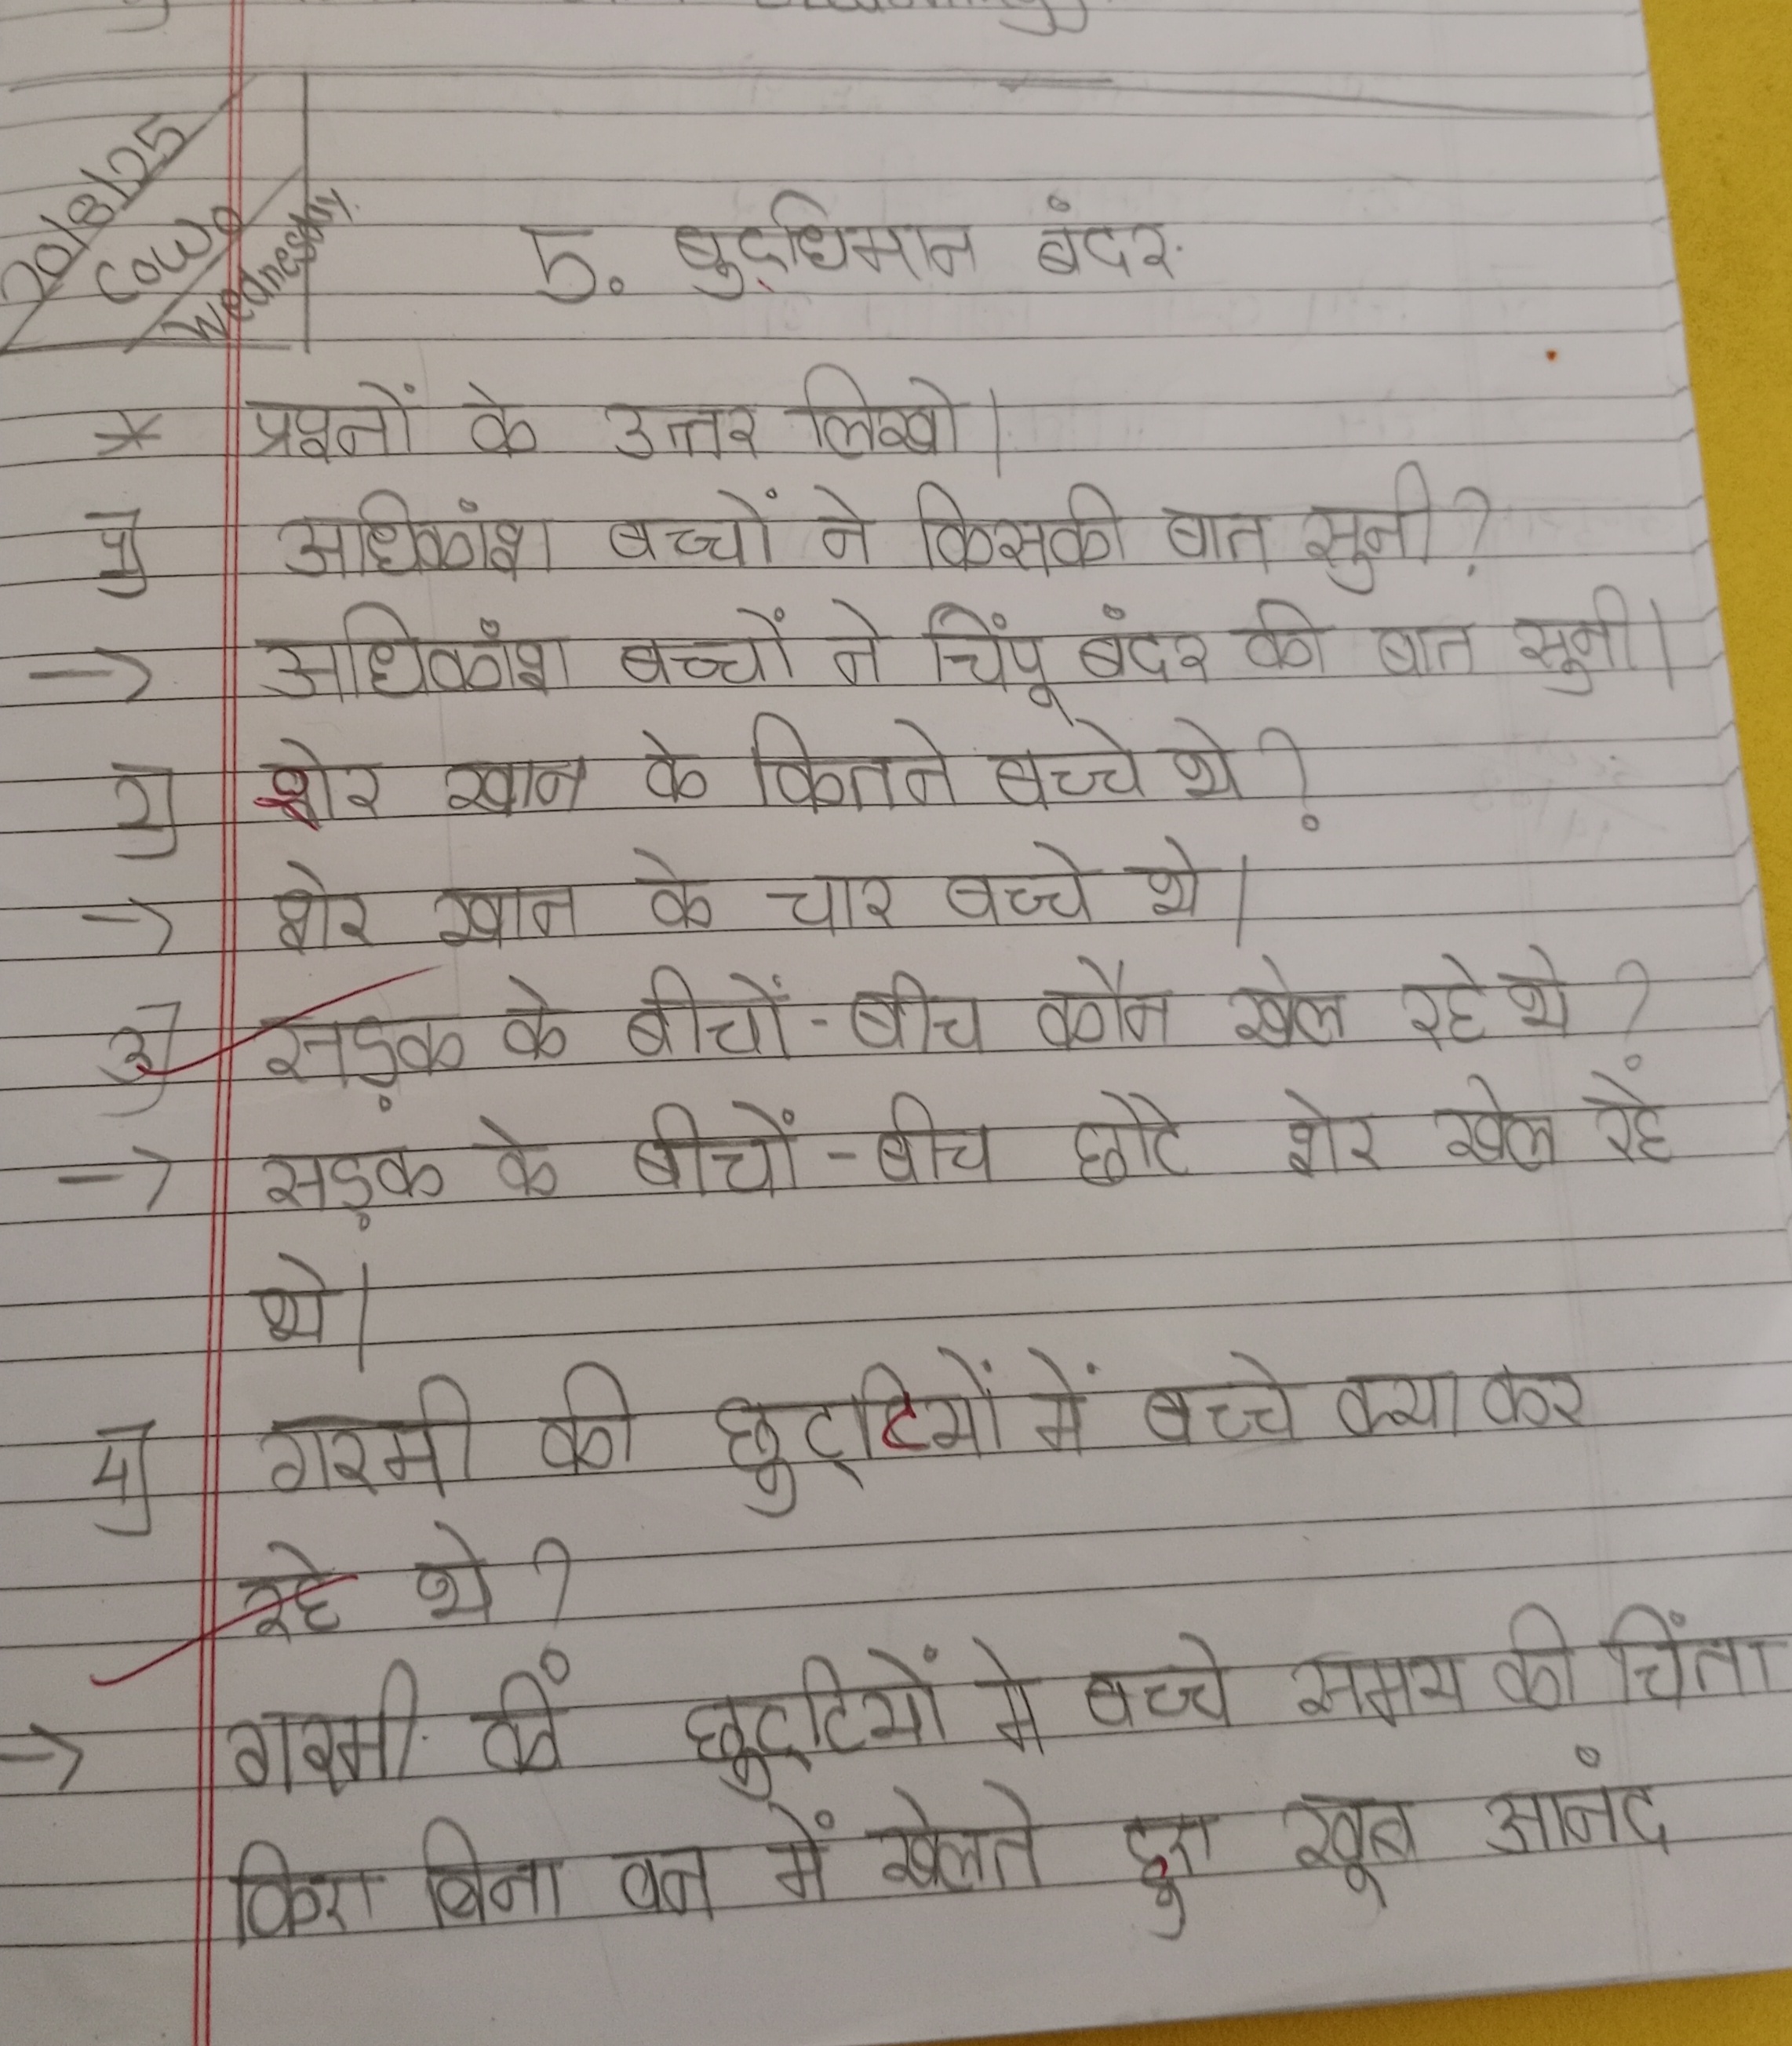 20/8/25
C.W
Wednesday.
5. बुद्धिमान बंदर.
* प्रश्नों के उत्तर लिखो|
1) अधिकांश बच्चों ने किसकी बात सुनी?
→ अधिकांश बच्चों ने चिंपू बंदर की बात सुनी|
2) शेर खान के कितने बच्चे थे?
→ शेर खान के चार बच्चे थे|
3) सड़क के बीचों-बीच कौन खेल रहे थे?
→ सड़क के बीचों-बीच छोटे शेर खेल रहें
थे|
4) गरमी की छुट्टियों में बच्चे क्या कर
रहे थे?
→ गरमी कीं छुट्टियों मे बच्चे समय की चिंता
किए बिना वन में खेलते हुए खूब आनंद